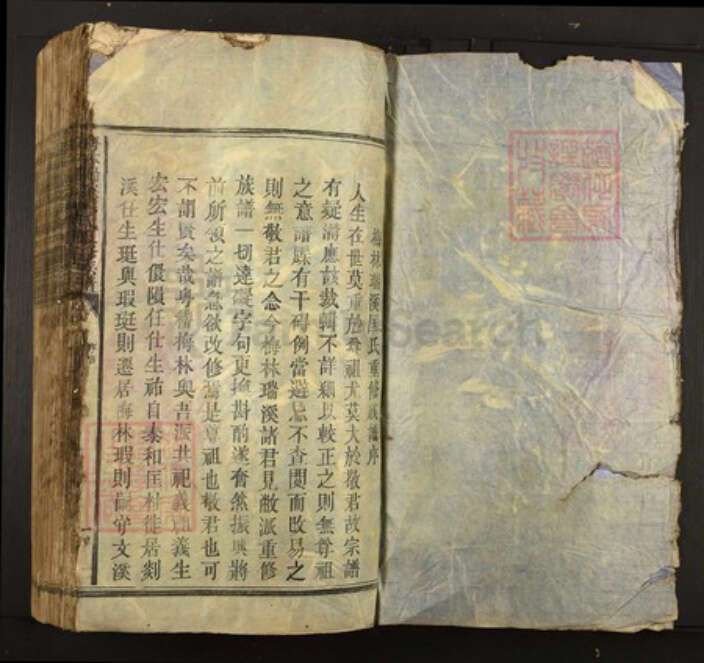 梅林瑞溪匡氏重修族譜序
人生在世莫重於尊祖尤莫大於敬君故宗譜
有疑滯應該裁輯不詳纇以較正之則無尊祖
之意譜牒有干碍例當避忌不查閱而改易之
則無敬君之念今梅林瑞溪諸君見敝派重修
族譜一切違礙字句更換斟酌遂奮然振興將
前所領之譜急欲改修焉是尊祖也敬君也可
不謂賢矣哉粵稽梅林與吾派共祀義義生
宏宏生仕儇隕任仕生祐自泰和匡村徙居剡
溪仕生珽與瑕珽則遷居梅林瑕則守文溪
Search